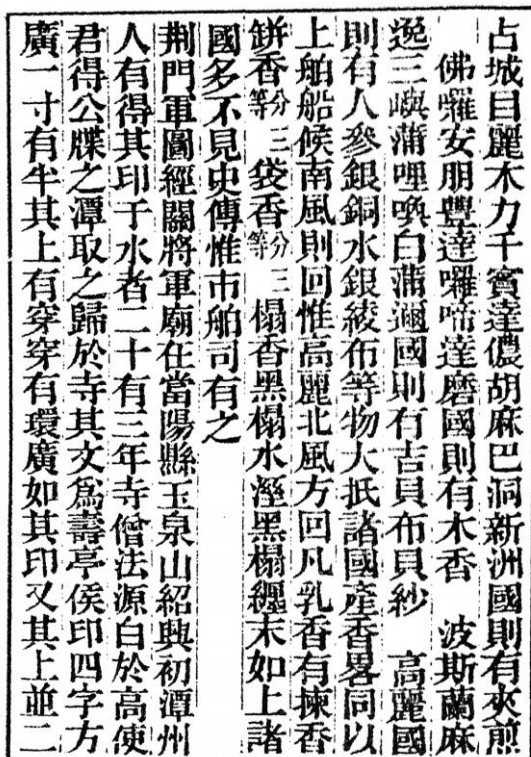 占城目麗木力千賓達儂胡麻巴洞新洲國則有夾煎
佛囉安朋豐達囉啼達磨國則有木香　波斯蘭麻
逸三嶼蒲哩喚白蒲邇國則有吉貝布貝紗　高麗國
則有人參銀銅水銀綾布等物大抵諸國產香畧同以
上舶船候南風則回惟高麗北風方回凡乳香有揀香
缾香分三等袋香分三等榻香黑榻水溼黑榻纏末如上諸
國多不見史傳惟市舶司有之
荆門軍圖經關將軍廟在當陽縣玉泉山紹興初潭州
人有得其印于水者二十有三年寺僧法源白於高使
君得公牒之潭取之歸於寺其文爲壽亭侯印四字方
廣一寸有半其上有穿穿有環廣如其印又其上並二